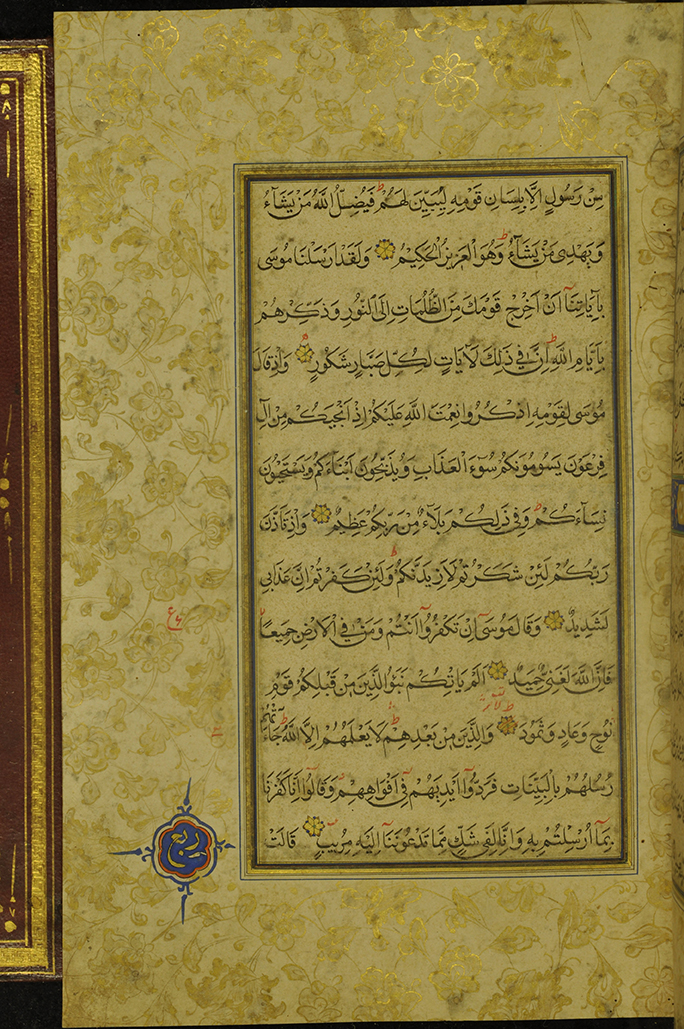 مِنْ رَسُولٍ اِلَّا بِلِسَانِ قَوْمِهِ لِيُبَيِّنَ لَهُمْ فَيُضِلُّ اللّٰهُ مَنْ يَشَآءُ
وَيَهْدِى مَنْ يَشَآءُ وَهُوَ الْعَزِيزُ الْحَكِيمُ وَلَقَدْ اَرْسَلْنَا مُوسٰى
بِاٰيَاتِنَآ اَنْ اَخْرِجْ قَوْمَكَ مِنَ الظُّلُمَاتِ اِلَى النُّورِ وَذَكِّرْهُمْ
بِاَيَّامِ اللّٰهِ اِنَّ فِى ذٰلِكَ لَاٰيَاتٍ لِكُلِّ صَبَّارٍ شَكُورٍ وَاِذْ قَالَ
مُوسٰى لِقَوْمِهِ اذْكُرُوا نِعْمَتَ اللّٰهِ عَلَيْكُمْ اِذْ اَنْجٰيكُمْ مِنْ اٰلِ
فِرْعَوْنَ يَسُومُونَكُمْ سُوٓءَ الْعَذَابِ وَيُذَبِّحُونَ اَبْنَآءَكُمْ وَيَسْتَحْيُونَ
نِسَآءَكُمْ وَفِى ذٰلِكُمْ بَلَآءٌ مِنْ رَبِّكُمْ عَظِيمٌ وَاِذْ تَاَذَّنَ
رَبُّكُمْ لَئِنْ شَكَرْتُمْ لَاَزِيدَنَّكُمْ وَلَئِنْ كَفَرْتُمْ اِنَّ عَذَابِى
لَشَدِيدٌ وَقَالَ مُوسٰٓى اِنْ تَكْفُرُوٓا اَنْتُمْ وَمَنْ فِى الْاَرْضِ جَمِيعًا
فَاِنَّ اللّٰهَ لَغَنِىٌّ حَمِيدٌ اَلَمْ يَاْتِكُمْ نَبَؤُا الَّذِينَ مِنْ قَبْلِكُمْ قَوْمِ
نُوحٍ وَعَادٍ وَثَمُودَ وَالَّذِينَ مِنْ بَعْدِهِمْ لَا يَعْلَمُهُمْ اِلَّا اللّٰهُ جَآءَتْهُمْ
رُسُلُهُمْ بِالْبَيِّنَاتِ فَرَدُّوٓا اَيْدِيَهُمْ فِىٓ اَفْوَاهِهِمْ وَقَالُوٓا اِنَّا كَفَرْنَا
بِمَآ اُرْسِلْتُمْ بِهِ وَاِنَّا لَفِى شَكٍّ مِمَّا تَدْعُونَنَآ اِلَيْهِ مُرِيبٍ قَالَتْ
ربع